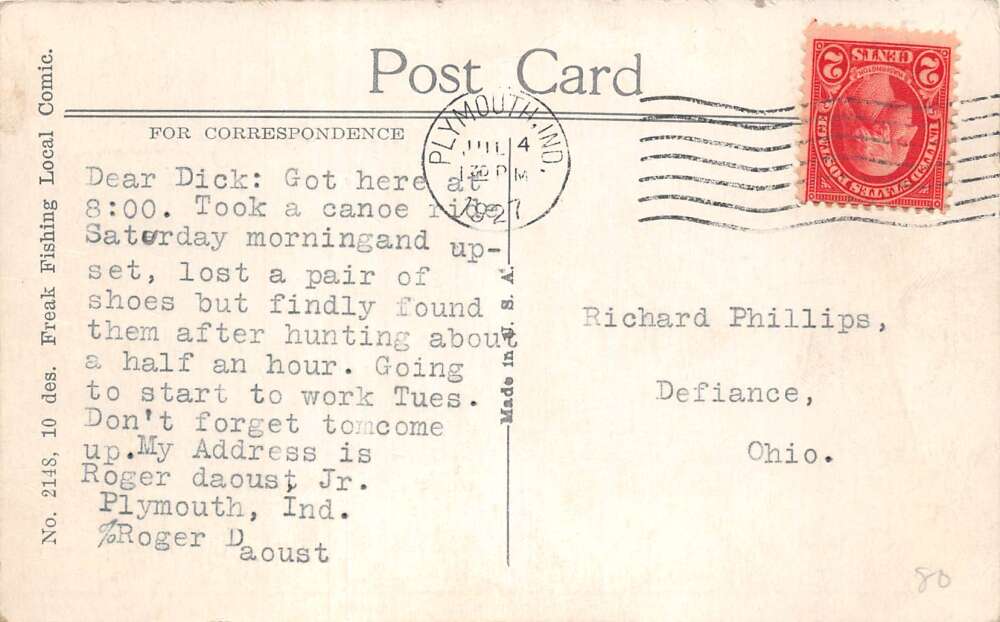 Post Card
FOR CORRESPONDENCE
Dear Dick: Got here at
8:00. Took a canoe ride
Saturday morningand up-
set, lost a pair of
shoes but findly found
them after hunting about
a half an hour. Going
to start to work Tues.
Don't forget tomcome
up.My Address is
Roger daoust Jr.
Plymouth, Ind.
℅Roger Daoust
No. 2148, 10 des. Freak Fishing Local Comic.
Made in U. S. A.
PLYMOUTH, IND.
JUL 4
PM
1927
2 CENTS 2
WASHINGTON
UNITED STATES POSTAGE
Richard Phillips,
Defiance,
Ohio.
80